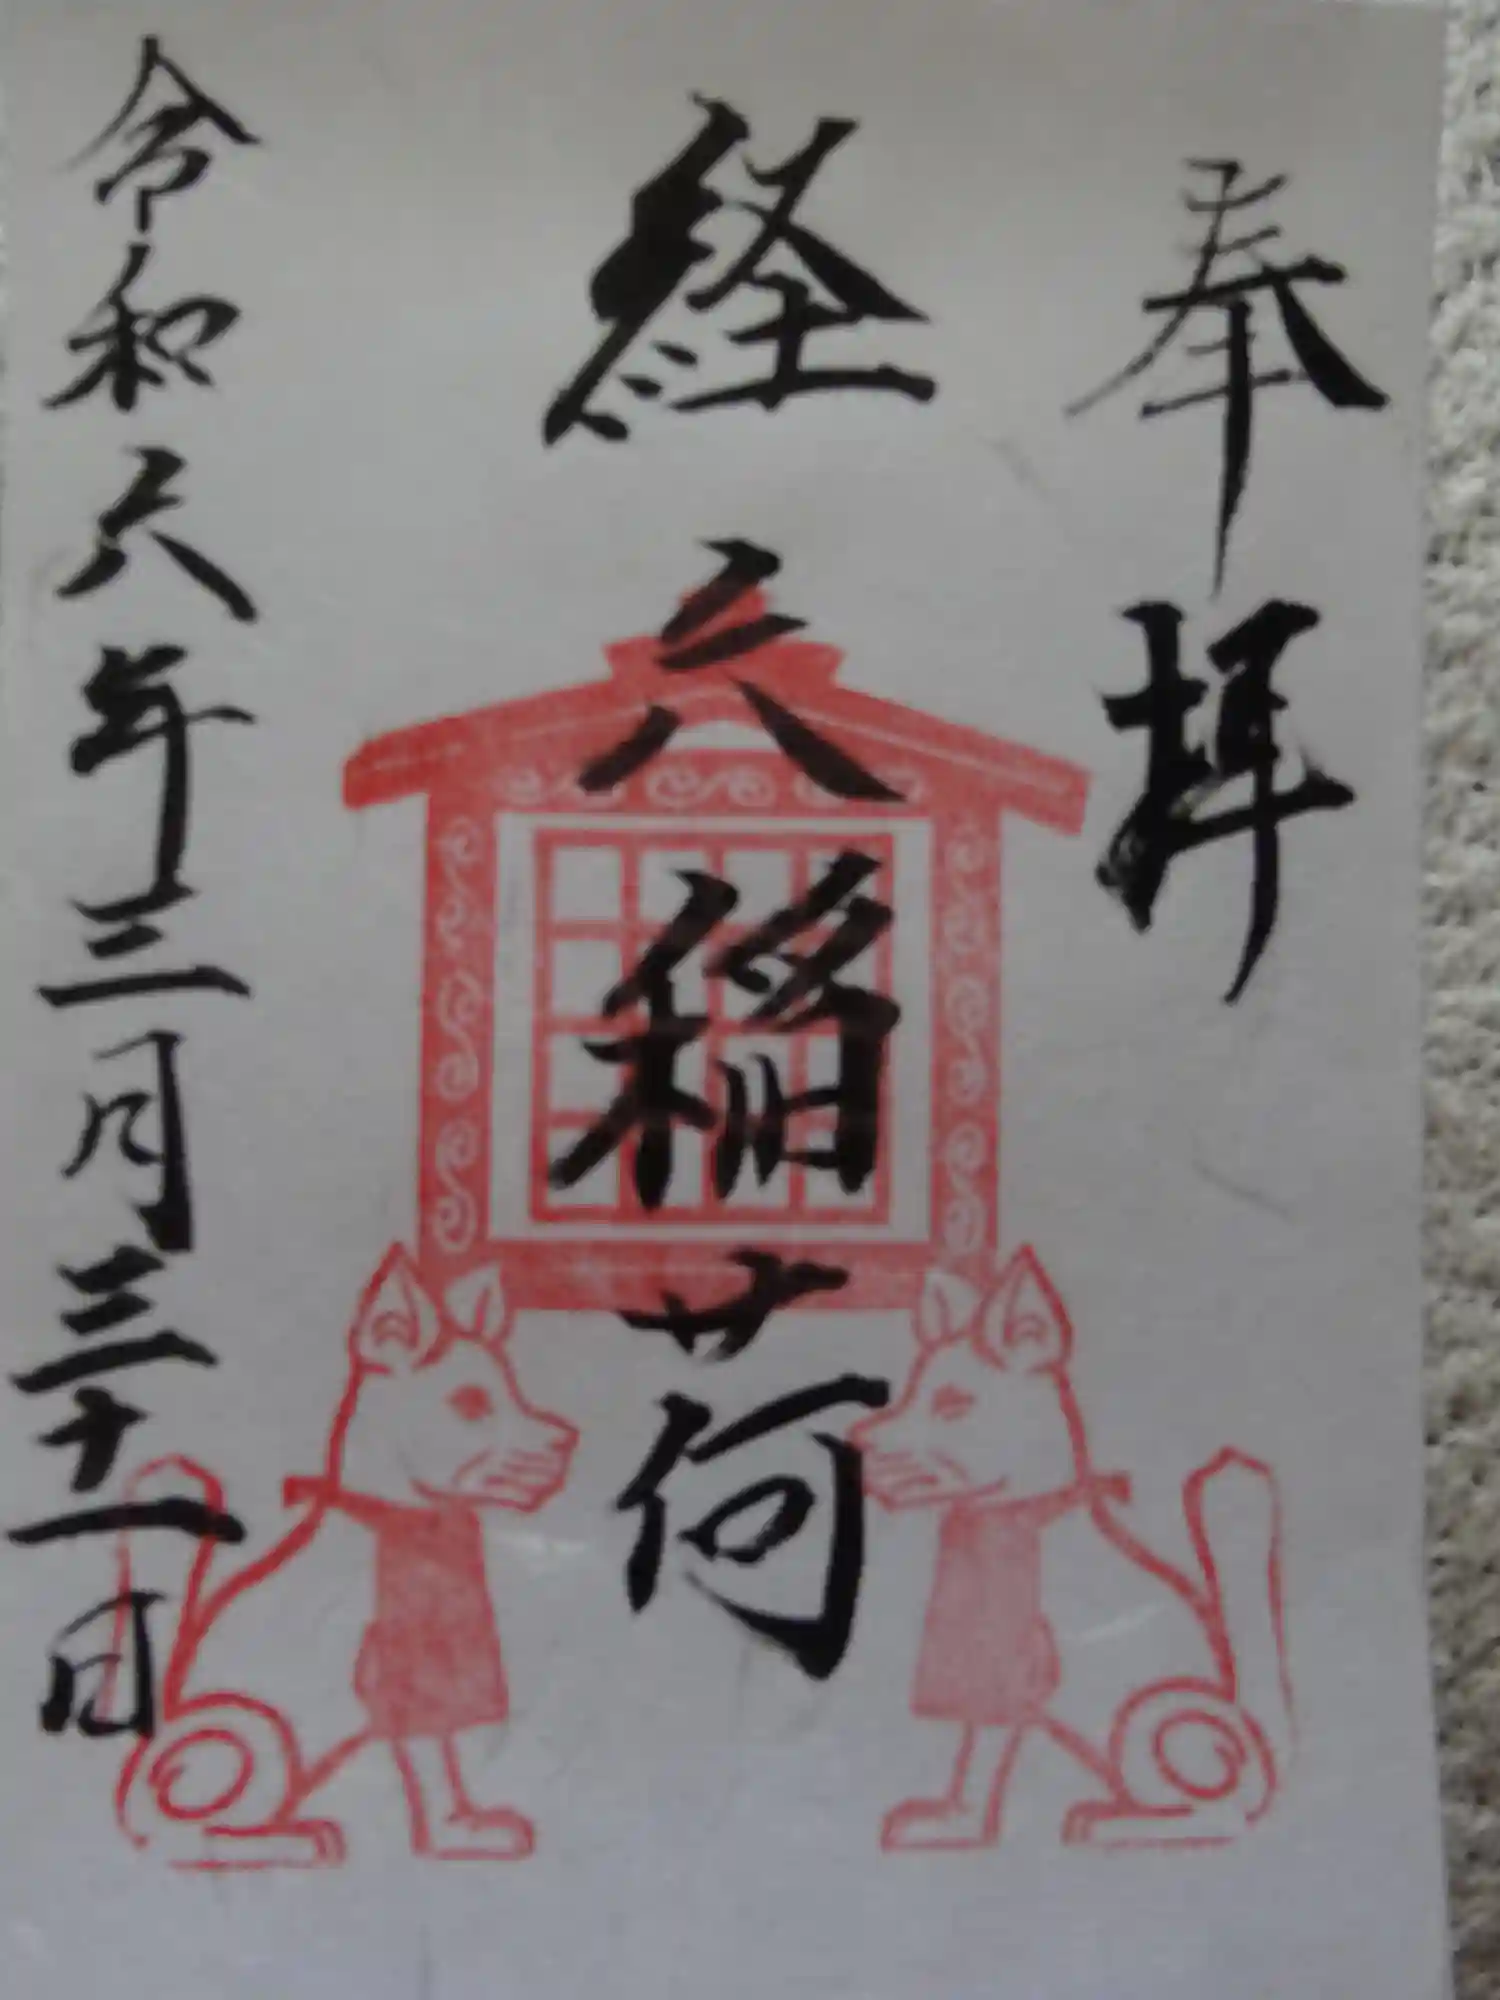 奉拝
経六稲荷
令和六年三月三十一日